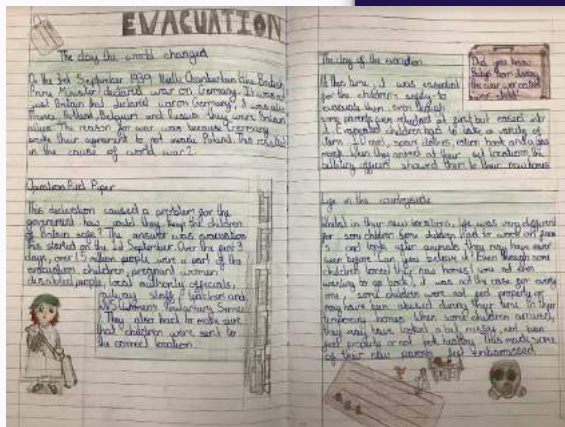 EVACUATION
The day the world changed
On the 3rd September 1939 Neville Chamberlain (the British
Prime Minister) declared war on Germany. It was not
just Britain that declared war on Germany, it was also
France, Poland, Belgium and Russia they were Britain's
allies. The reason for war was because Germany
broke their agreement to not invade Poland this resulted
in the cause of world war 2.
Operation Pied Piper
This declaration caused a problem for the
government how could they keep the children
of Britain safe? The answer was evacuation
This started on the 1st September. Over the past 3
days, over 1.5 million people were a part of the
evacuation, children, pregnant women
disabled people, local authority officials,
railway staff, teachers and
WVS (Women's Voluntary Service)
They also had to make sure
that children were sent to
the correct location.
The day of the evacuation
At this time, it was essential
for the children's safety to
evacuate them even though
some parents were reluctant at first but
Evacuated children had to take a variety of
items: ID card, spare clothes, ration book and a gas
mask. When they arrived at their set location, the
billeting officers showed them to their new homes
Did you know
Babys born during
the war was called
war child!
Life in the countryside
Whilst in their new location, life was very different
for some children. Some children had to work on farms
and look after animals they may have never
seen before. Can you believe it? Even though some
children loved their new homes (some not even
wanting to go back), it was not the case for every
one, some children were not fed properly or
may have been abused during their time in their
temporary homes. When some children arrived,
they may have looked a bit messy, not been
fed properly or not felt healthy. This made some
of their new parents feel embarrassed